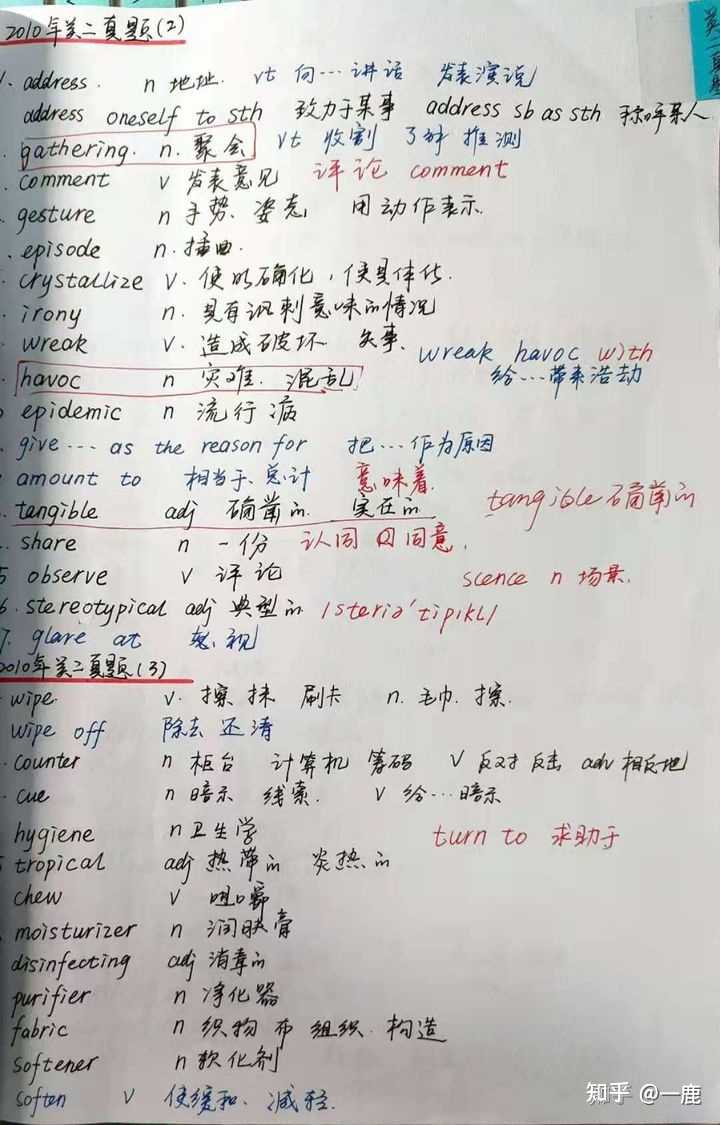 2010年英二真题(2)
1. address. n 地址. vt 向…讲话 发表演说
address oneself to sth 致力于某事 address sb as sth 称呼某人
gathering. n. 聚会 vt 收割 了解 推测
comment v 发表意见 评论 comment
gesture n 手势. 姿态 用动作表示.
episode n. 插曲.
crystallize v. 使明确化, 使具体化.
irony n. 具有讽刺意味的情况
wreak v. 造成破坏 失事. wreak havoc with
havoc n 灾难. 混乱 给…带来浩劫
epidemic n 流行病
give … as the reason for 把…作为原因
amount to 相当于. 总计 意味着.
tangible adj 确凿的. 实在的 tangible 确凿的
share n 一份 认同 同意.
5 observe v 评论 scence n 场景.
6. stereotypical adj 典型的 /steriə'tipikl/
7. glare at 怒视
2010年英二真题(3)
wipe. v. 擦 抹 刷卡 n. 毛巾. 擦.
wipe off 除去 还清
counter n 柜台 计算机 筹码 v 反对 反击 adv 相反地
cue n 暗示 线索. v 给…暗示
hygiene n 卫生学 turn to 求助于
tropical adj 热带的 炎热的
chew v 咀嚼
moisturizer n 润肤膏
disinfecting adj 消毒的
purifier n 净化器
fabric n 织物 布 组织. 构造
softener n 软化剂
soften v 使缓和. 减轻.
知乎 @一鹿